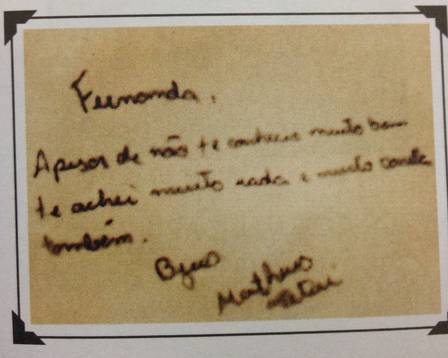 Fernanda,
Apesar de não te conhecer muito bem
te achei muito e muito
também.
Bjus
Matheus